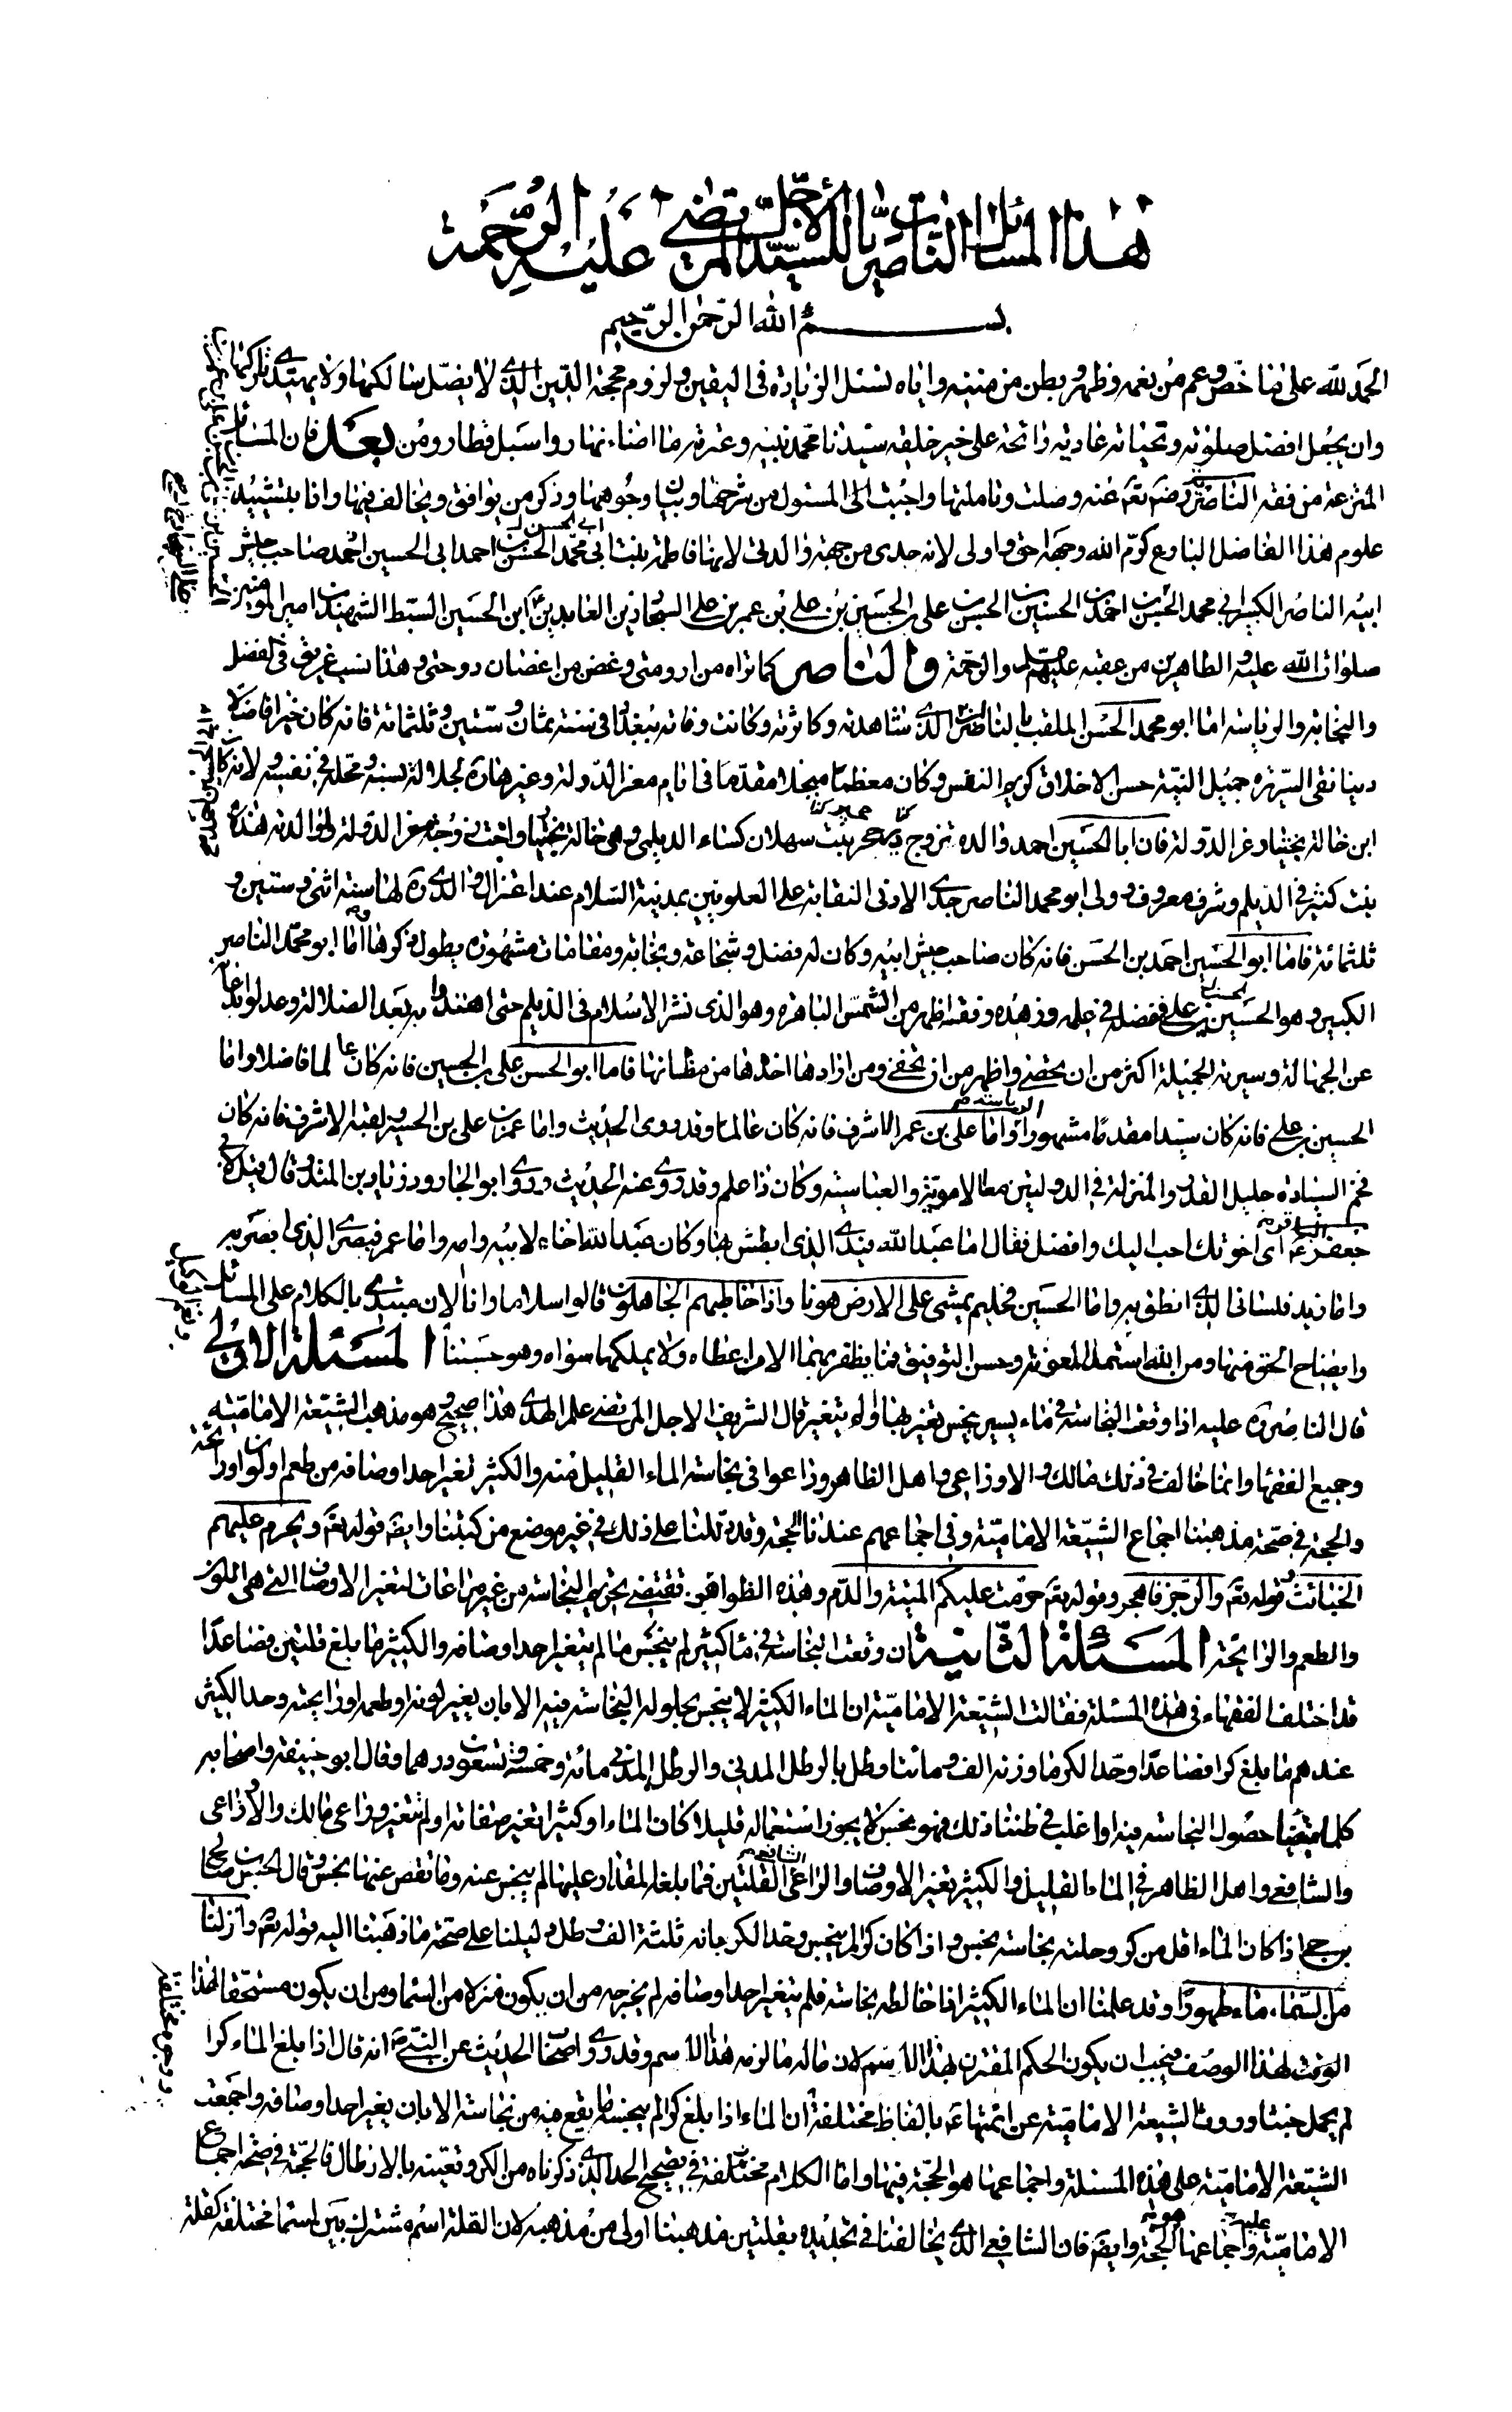 هذا المسائل الناصريات للسيد الاجل المرتضى عليه الرحمة
بسم الله الرحمن الرحيم
الحمد لله على ما خص وعم من نعمه وظهر وبطن من مننه واياه نسئل الزيادة فى اليقين ولزوم محجة الدين الذى لا يضل سالكها ولا يهتدى تاركها
وان يجعل افضل صلوته وتحياته غادية رائحة على خير خليقه سيدنا محمد نبيه وعترته ما اضاء نهار واسبل قطار ومن بعد فان المسائل
المنتزعة من فقه الناصر رضه تعه عنه وصلت وتاملتها واجبت الى المسئول من شرحها وبيان وجوهها وذكر من يوافق ويخالف فيها وانا بتشييد
علوم هذا الفاضل البارع كرم الله وجهه احق واولى لانه جدى من جهة والدتى لانها فاطمة بنت ابى محمد الحسن بن احمد ابى الحسين احمد صاحب جيش
ابيه الناصر الكبير ابى محمد الحسن بن احمد بن الحسين بن الحسن بن على بن الحسين بن على بن عمر بن على السجاد زين العابدين ابن الحسين السبط الشهيد بن امير المومنين
صلوات الله عليه والطاهرين من عقبه عليهم والرحمة والناصر كما تراه من ارومتى وغصن من اغصان دوحتى وهذا نسب غريق فى الفضل
والنجابة والرياسة اما ابو محمد الحسن الملقب بالناصر الذى شاهدته وكاثرته وكانت وفاته ببغداد فى سنة ثمان وستين وثلثمائة فانه كان خيرا فاضلا
دينا نقى السريره جميل النية حسن الاخلاق كريم النفس وكان معظما مبجلا مقدما فى ايام معز الدولة وغيرها ره لجلالة نسبه ومحله فى نفسه ولانه كان
ابن خالة بختيار عز الدولة فان ابا الحسين احمد والده تزوج بنت سهلان كساء الديلمى وهى خالة بختيار واخت زوجة معز الدولة ولوالدته هذه
بنت كثير فى الديلم وشرف معروف وولى ابو محمد الناصر جدى الادنى النقابة على العلويين بمدينة السلام عند اعتزال والدى ره لها سنة اثنى وستين و
ثلثمائة فاما ابو الحسين احمد بن الحسن فانه كان صاحب جيش ابيه وكان له فضل وشجاعة ونجابة ومقامات مشهورة يطول ذكرها اما ابو محمد الناصر
الكبير وهو الحسين بن على ففضله فى علمه وزهده وفقهه اظهر من الشمس الباهرة وهو الذى نشر الاسلام فى الديلم حتى اهتدوا به بعد الضلالة وعدلوا بدعائه
عن الجهالة وسيرته الجميلة اكثر من ان يحصى واظهر من ان يخفى ومن ارادها اخذها من مظانها فاما ابو الحسن على بن الحسين فانه كان عالما فاضلا واما
الحسين بن على فانه كان سيدا مقدما مشهورا واما على بن عمر الاشرف فانه كان عالما وقد روى الحديث واما عمر بن على بن الحسين ولقبه الاشرف فانه كان
فخم السيادة جليل القدر والمنزلة فى الدولتين معا الاموية والعباسية وكان ذا علم وقد روى عنه الحديث وروى ابو الجارود زياد بن المنذر قال قيل لابى
جعفر ع اى اخوتك احب اليك وافضل فقال اما عبد الله فيدى الذى ابطش بها وكان عبد الله اخاه لابيه وامه واما عمر فبصرى الذى ابصر به
واما زيد فلسانى الذى انطق به واما الحسين فحليم يمشى على الارض هونا واذا خاطبهم الجاهلون قالوا سلاما وانا الان مبتدى بالكلام على المسائل
وايضاح الحق منها ومن الله استمد المعونة وحسن التوفيق فما يظفر بهما الا من اعطاه ولا يملكهما سواه وهو حسبنا المسئلة الاولى
قال الناصر ره عليه اذا وقعت النجاسة فى ماء يسير ينجس تغير بها اولم يتغير قال الشريف الاجل المرتضى علم الهدى هذا صحيح وهو مذهب الشيعة الامامية
وجميع الفقها وانما خالف فى ذلك مالك والاوزاعى واهل الظاهر وراعوا فى نجاسة الماء القليل منه والكثير تغير احد اوصافه من طعم اولون اورائحة
والحجة فى صحة مذهبنا اجماع الشيعة الامامية وفى اجماعهم عندنا الحجة وقد دللنا على ذلك فى غير موضع من كتبنا وايضه قوله تعه ويحرم عليهم
الخبائث وقوله تعه والرجز فاهجر وقوله تعه حرمت عليكم الميتة والدم وهذه الظواهر تقتضى تحريم النجاسة من غير مراعات لتغير الاوصاف التى هى اللون
والطعم والرائحة المسئلة الثانية ان وقعت النجاسة فى ماء كثير لم ينجس ما لم يتغير احد اوصافه والكثير ما بلغ قلتين فصاعدا
قد اختلف الفقهاء فى هذه المسئلة فقالت الشيعة الامامية ان الماء الكثير لا ينجس بحلول النجاسة فيه الا بان يغير لونه اوطعمه اورايحته وحد الكثير
عندهم ما بلغ كرا فصاعدا وحد الكر ما وزنه الف وماتا رطل بالرطل المدنى والرطل المدنى مائة وخمسة وتسعون درهما وقال ابو حنيفة واصحابه
كلما تيقنا حصول النجاسة فيه اوغلب فى ظننا ذلك فهو نجس لا يجوز استعماله قليلا كان الماء اوكثيرا تغير صفاته اولم تتغير وراعى مالك والاوزاعى
والشافعى واهل الظاهر فى الماء القليل والكثير تغير الاوصاف وراعى الشافعى القلتين فما بلغ المقدار عليها لم ينجس عنده وما نقص عنها نجس وقال الحسن بن صالح
بن حى اذا كان الماء اقل من كر وحلته نجاسة نجس واذا كان كرا لم ينجس وحد الكر بانه ثلثة الف رطل دليلنا على صحة ما ذهبنا اليه قوله تعه وانزلنا
من السماء ماء طهورا وقد علمنا ان الماء الكثير اذا خالطه نجاسة فلم يتغير احد اوصافه لم يخرجه من ان يكون منزلا من السماء ومن ان يكون مستحقا لهذا
الوقت لهذا الوصف فيجب ان يكون الحكم المقترن بهذا الاسم لان ماله ما لزمه هذا الاسم وقد روى اصحاب الحديث عن النبى ص انه قال اذا بلغ الماء كرا
لم يحمل خبثا وروت الشيعة الامامية عن ائمتها ع بالفاظ مختلفة ان الماء اذا بلغ كرا لم ينجسه ما يقع فيه من نجاسة الا بان يغير احد اوصافه واجمعت
الشيعة الامامية على هذه المسئلة واجماعها هو الحجة فيها واما الكلام فى تصحيح الحد الذى ذكرناه من الكر وتعينه بالارطال فالحجة فى صحته اجماع
الامامية عليه واجماعها هو الحجة وايضه فان الشافعى الذى يخالفنا فى تحديده بقلتين مذهبنا اولى من مذهبه لان القلة اسم مشترك بين اسما مختلفة كقلة